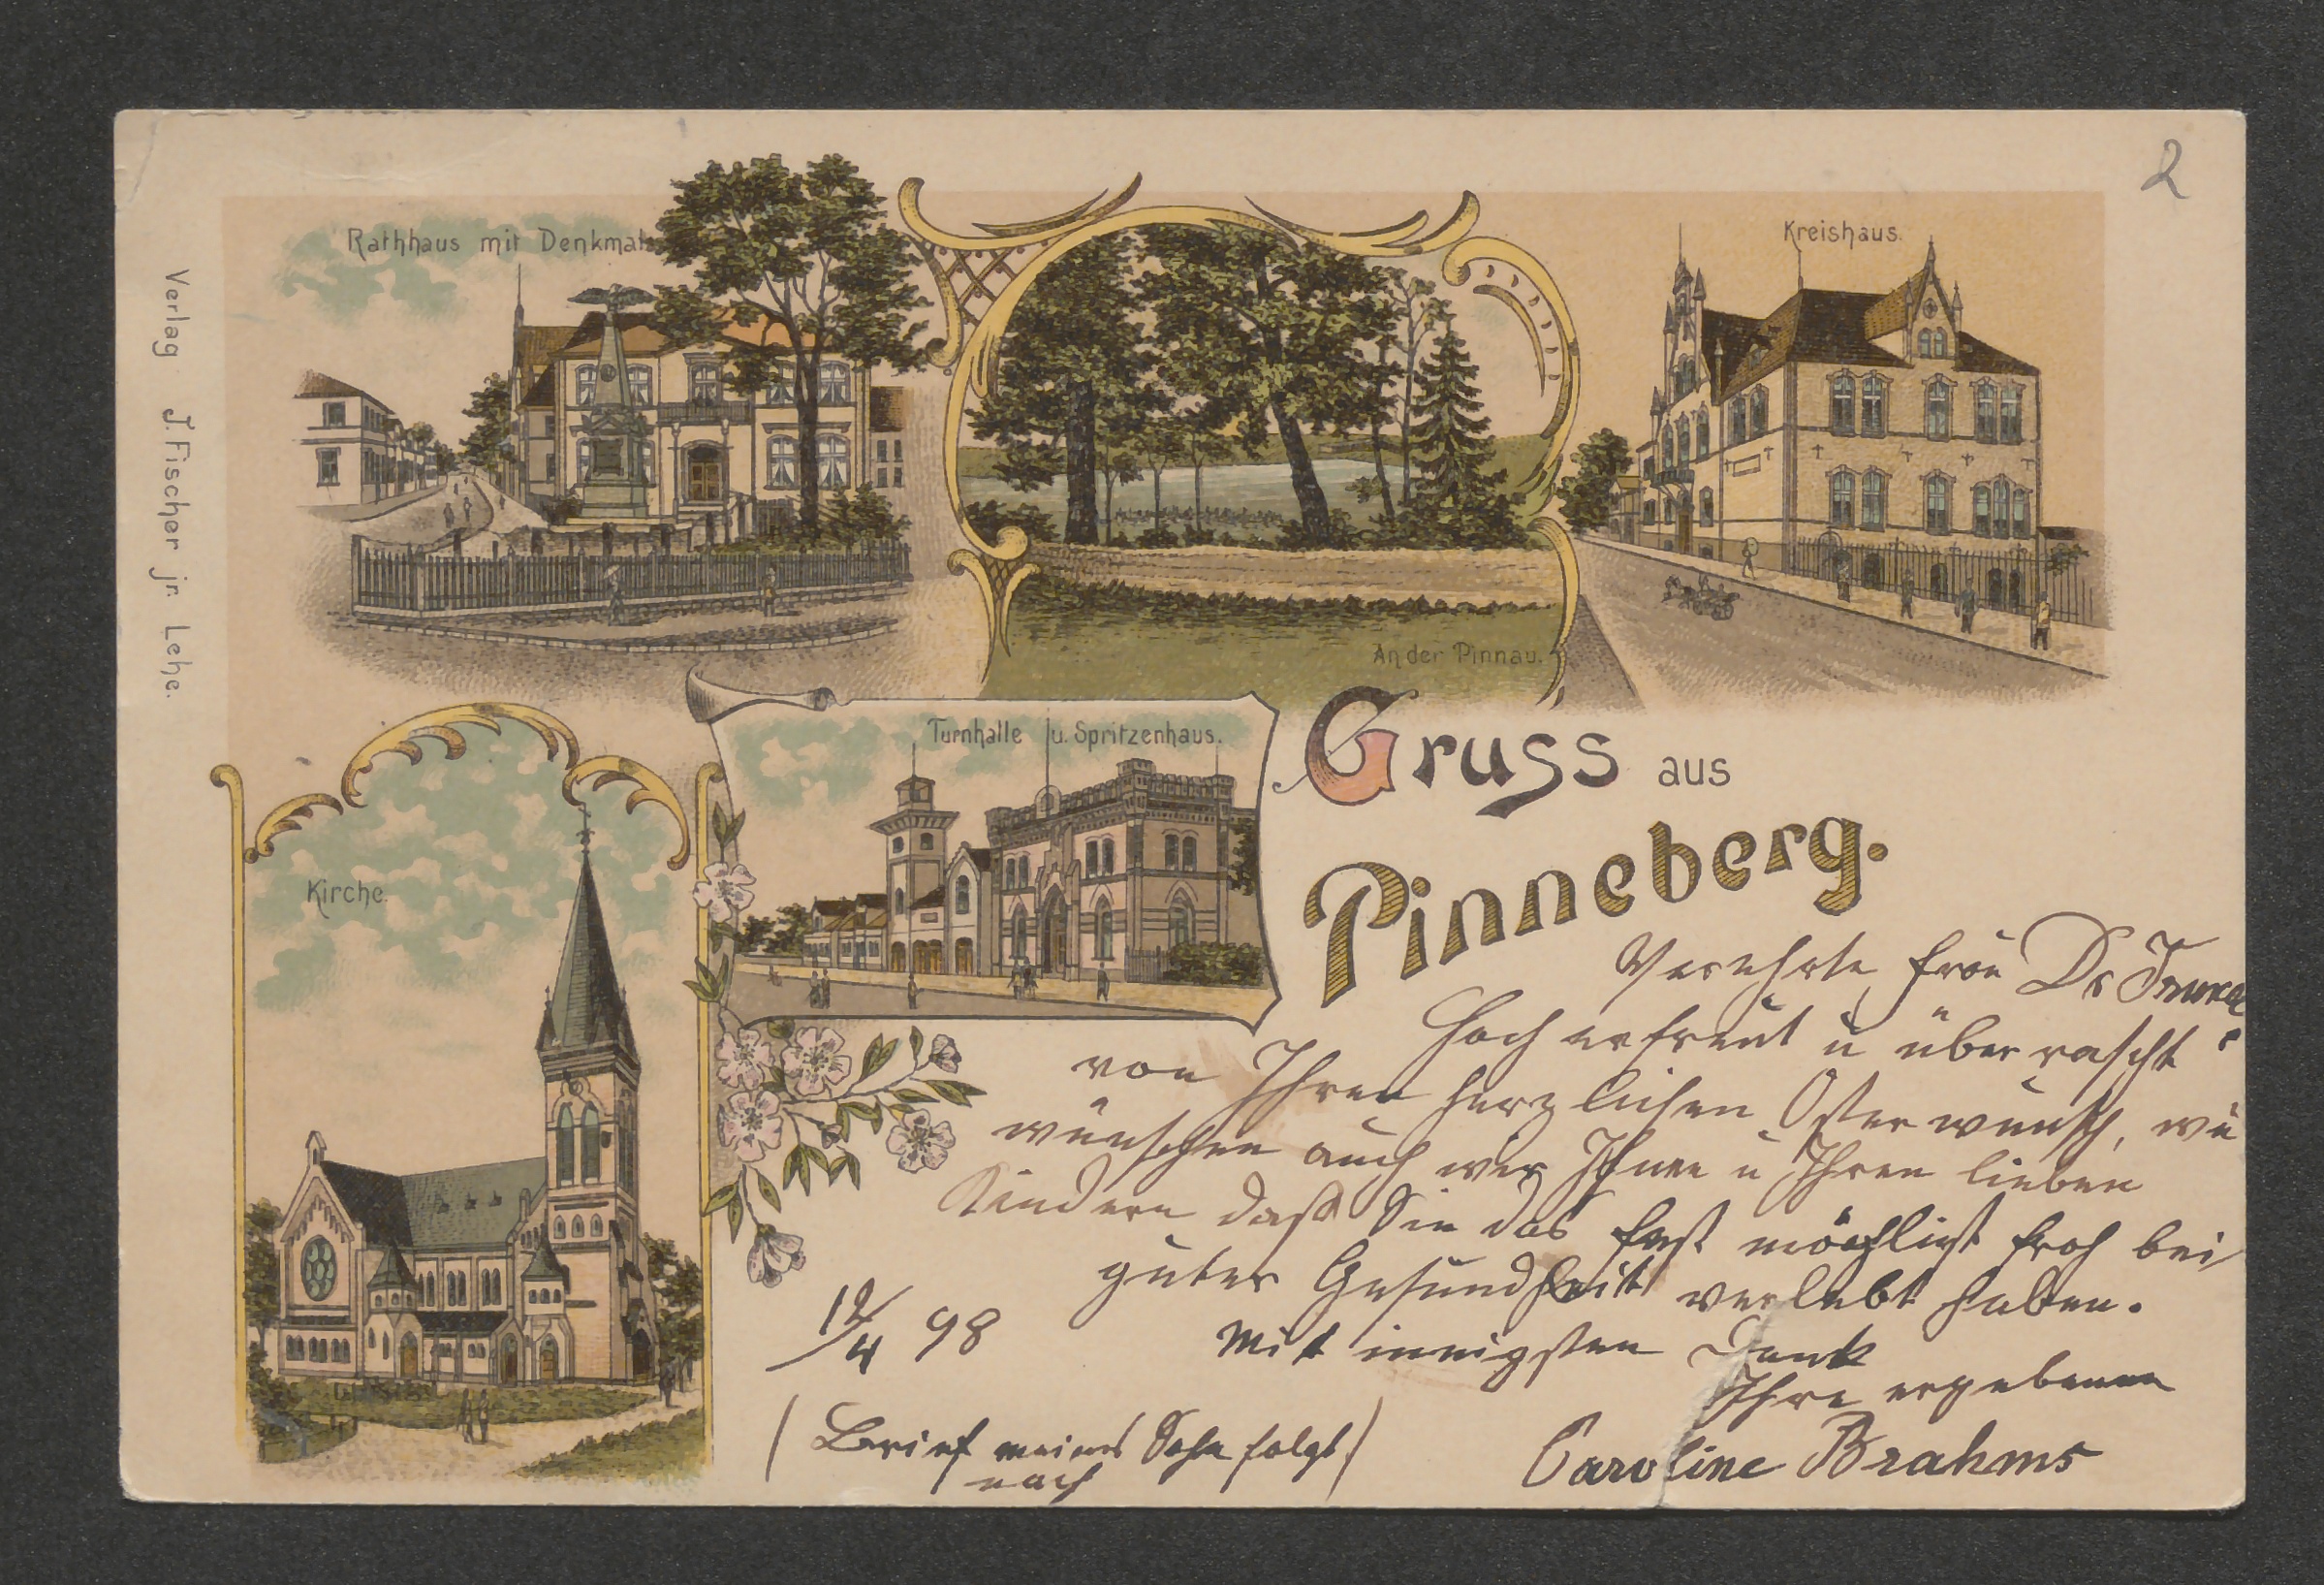 2
Rathhaus mit Denkmal.
Kreishaus.
Verlag J. Fischer jr. Lehe.
An der Pinnau.
Turnhalle u. Spritzenhaus.
Kirche.
Gruss aus
Pinneberg.
Verehrte Frau Dr
Hoch erfreut u überrascht
von Ihren herzlichen Osterwunsch,
wünschen auch wir Ihnen u Ihren lieben
Kindern daß Sie das Fest möglichst froh bei
guter Gesundheit verlebt haben.
Mit innigsten Dank
Ihre ergebenen
Caroline Brahms
12/4 98
(Brief meines Sohn folgt)
nach